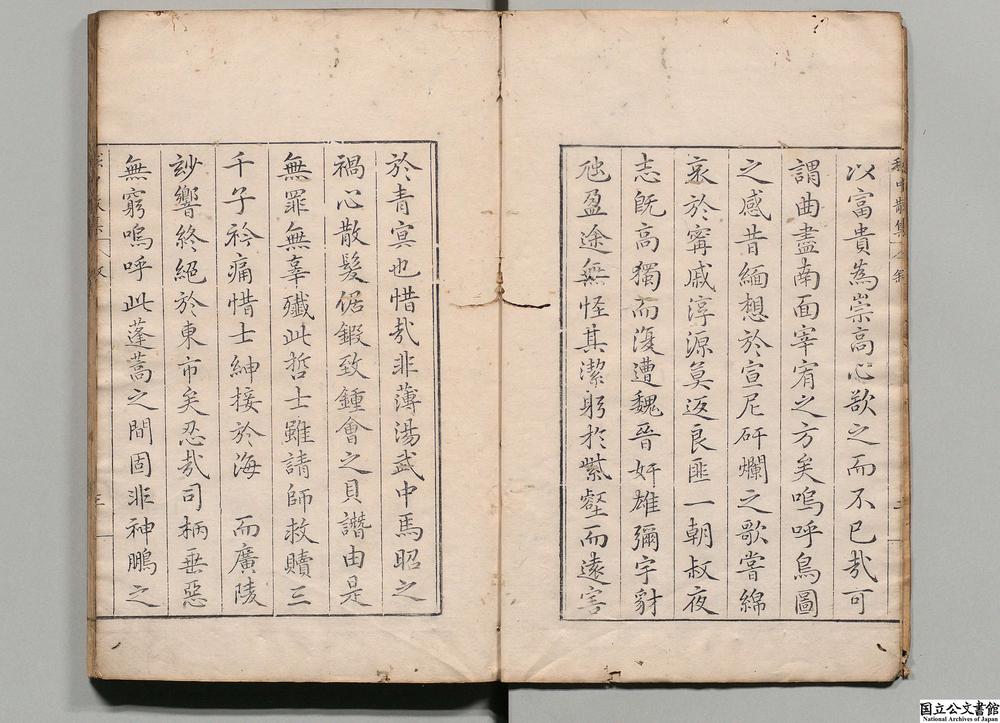 以富貴為崇高心欲之而不已㢤可
謂曲盡南面宰宥之方矣嗚呼鳥圖
之感昔緬想於宣尼矸爛之歌嘗綿
哀於甯戚淳源莫返良匪一朝叔夜
志旣高獨而復遭魏晉奸雄彌宇豺
虺盈途無怪其潔躬扵紫壑而遠害
於青㝠也惜㢤非薄湯武中馬昭之
禍心散髮倨鍛致鍾會之貝譖由是
無罪無辜殲此哲士雖請師救贖三
千子衿痛惜士紳接於海 而廣陵
玅響終絕於東市矣忍㢤司柄垂惡
無窮嗚呼此蓬蒿之間固非神鵬之
嵇中散集 叙 三
国立公文書館
National Archives of Japan